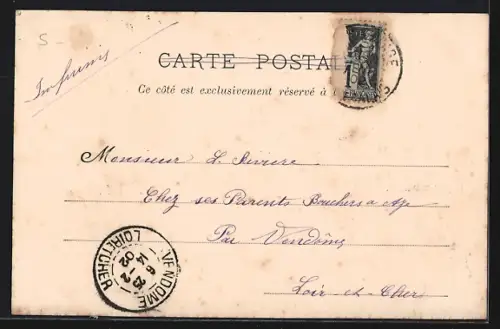 5 -
Imprimé
CARTE POSTALE
Ce côté est exclusivement réservé à l'
Monsieur L. Riviere
Chez ses Parents Bouchers a Aze
Par Vendôme
Loir-et-Cher
VENDOME
LOIR-ET-CHER
6
14 - 2
02